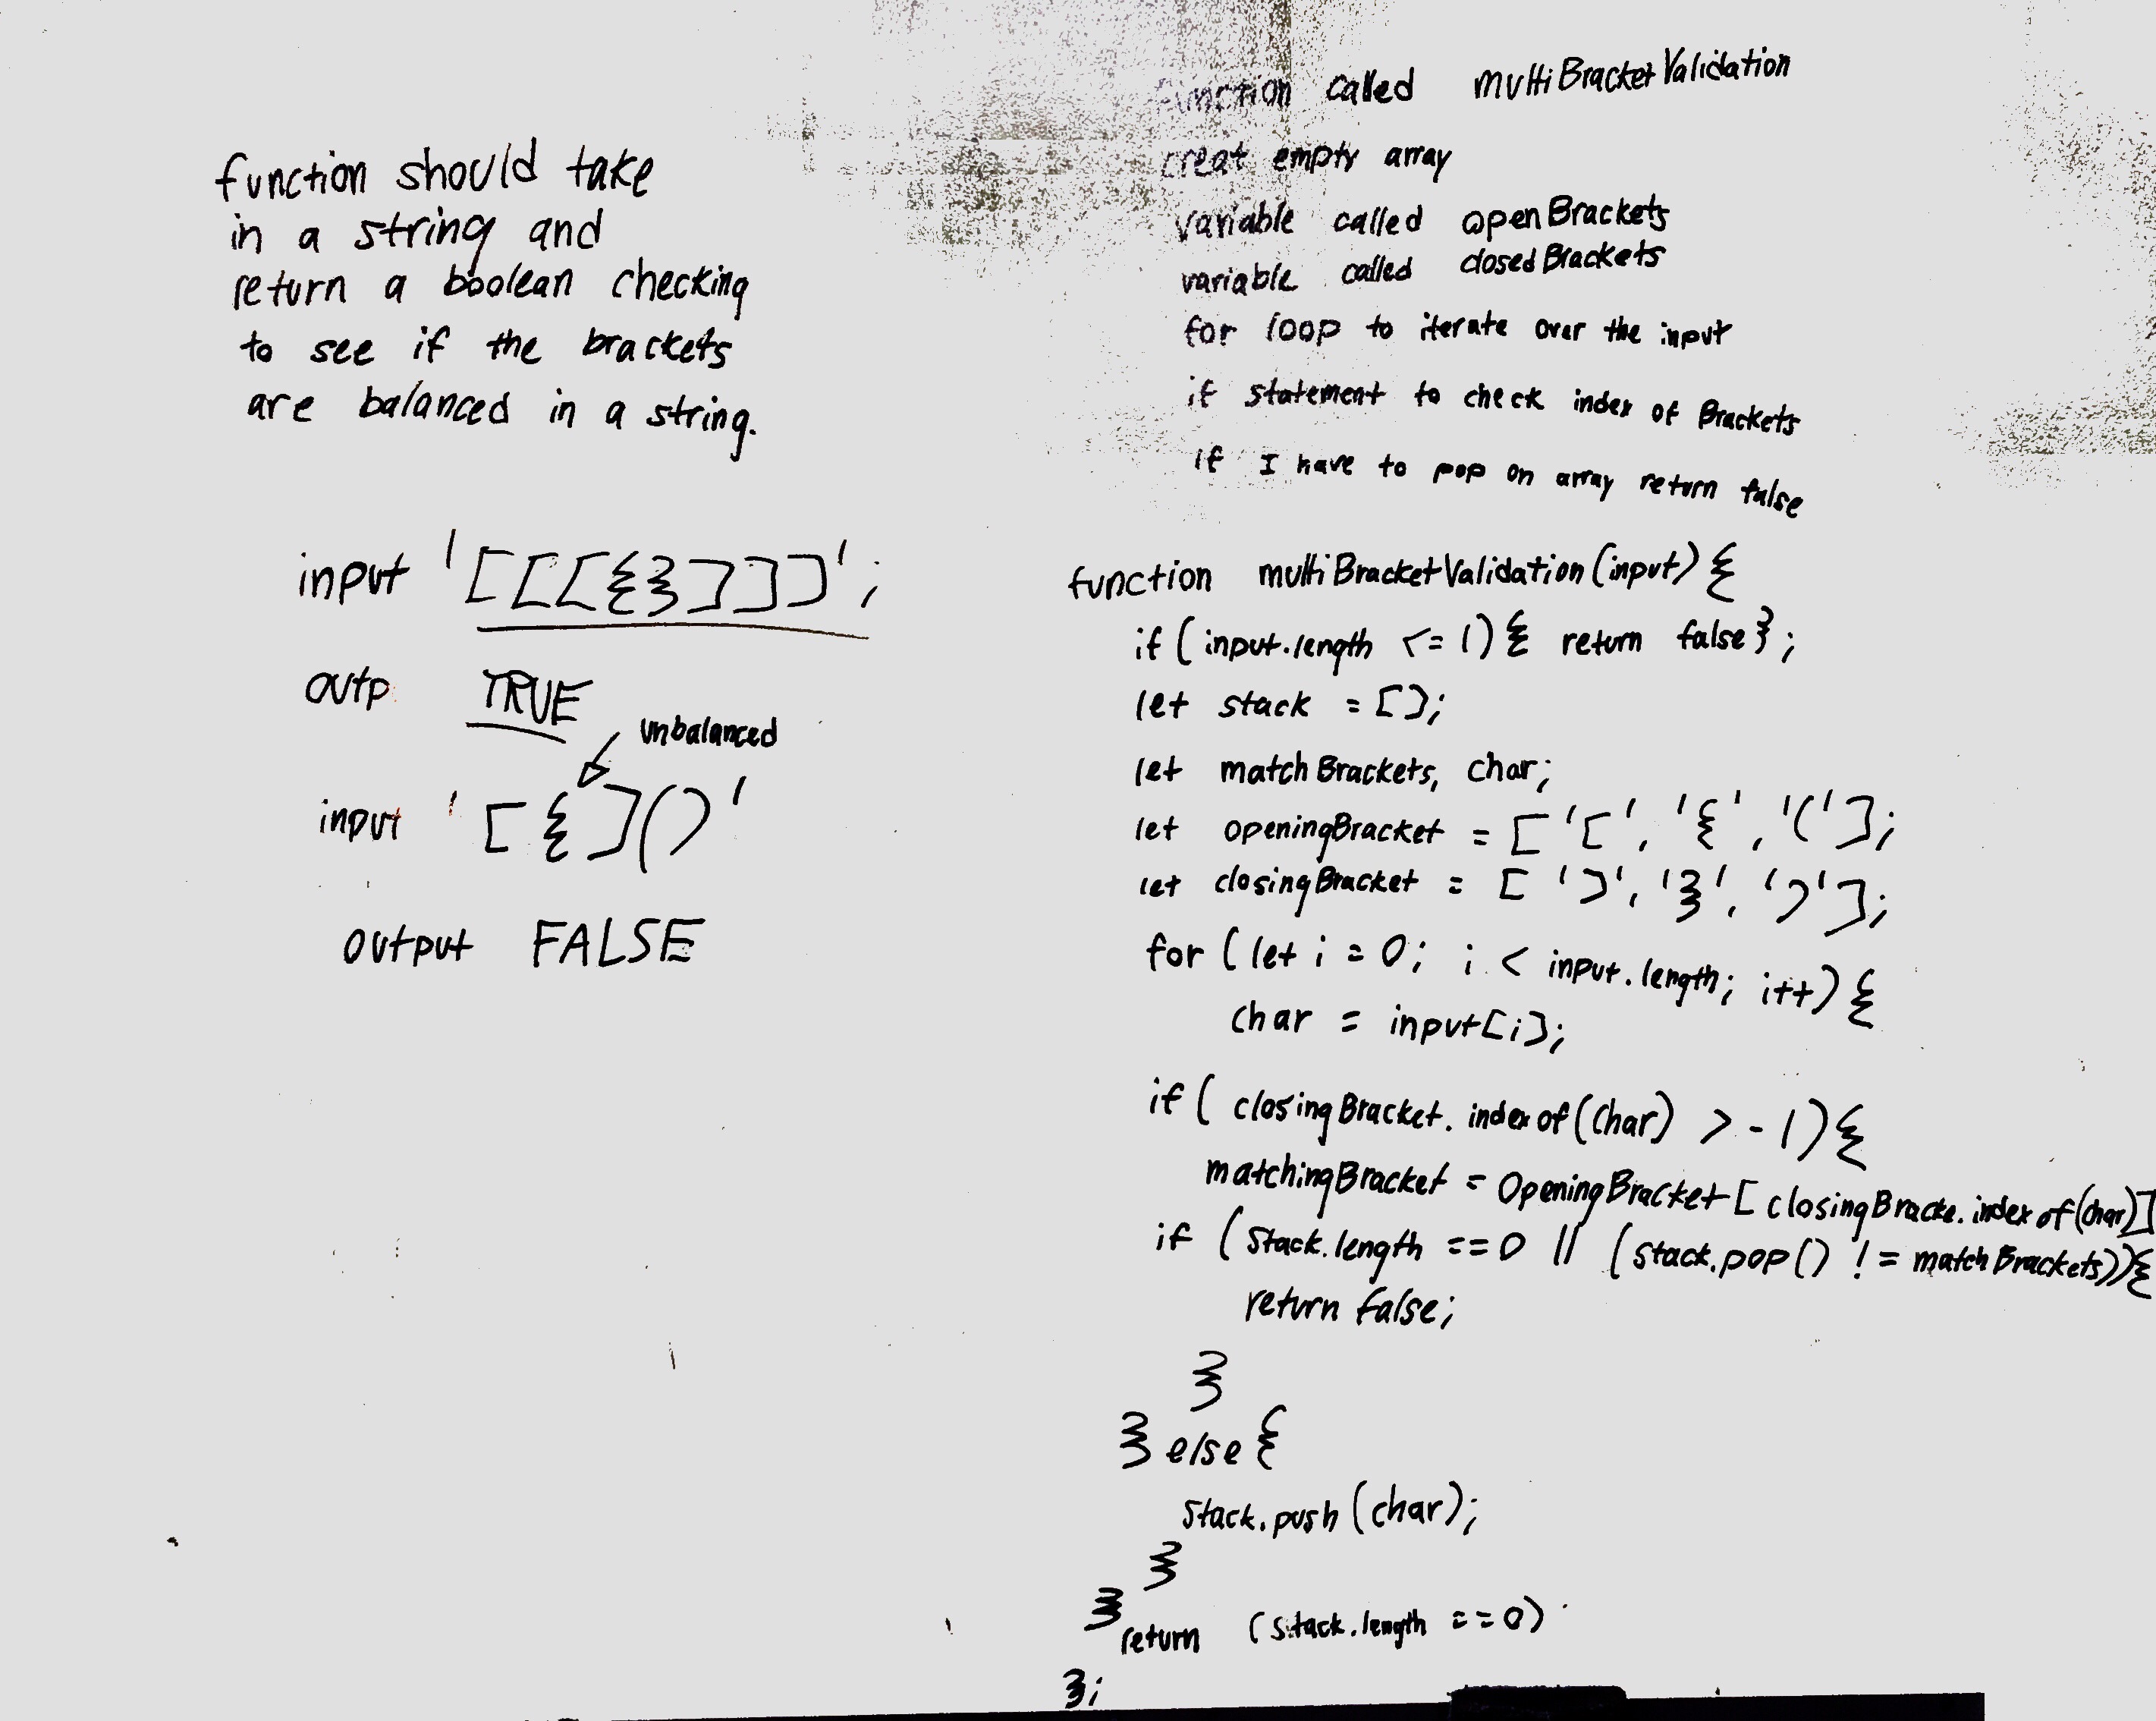 function should take
in a string and
return a boolean checking
to see if the brackets
are balanced in a string.
input '[[[{}]]]';
outp TRUE
unbalanced
input '[{]()'
output FALSE
function called multiBracketValidation
creat empty array
variable called openBrackets
variable called closedBrackets
for loop to iterate over the input
if statement to check index of Brackets
if I have to pop on array return false
function multiBracketValidation(input){
if(input.length <= 1){ return false};
let stack = [];
let matchBrackets, char;
let openingBracket = ['[', '{', '('];
let closingBracket = [']', '}', ')'];
for (let i = 0; i < input.length; i++){
char = input[i];
if( closingBracket.indexof(char) > -1){
matchingBracket = OpeningBracket[closingBracke.indexof(char)]
if (Stack.length ==0 || (stack.pop() != matchBrackets)){
return false;
}
} else {
Stack.push(char);
}
}
return (stack.length ==0)
};